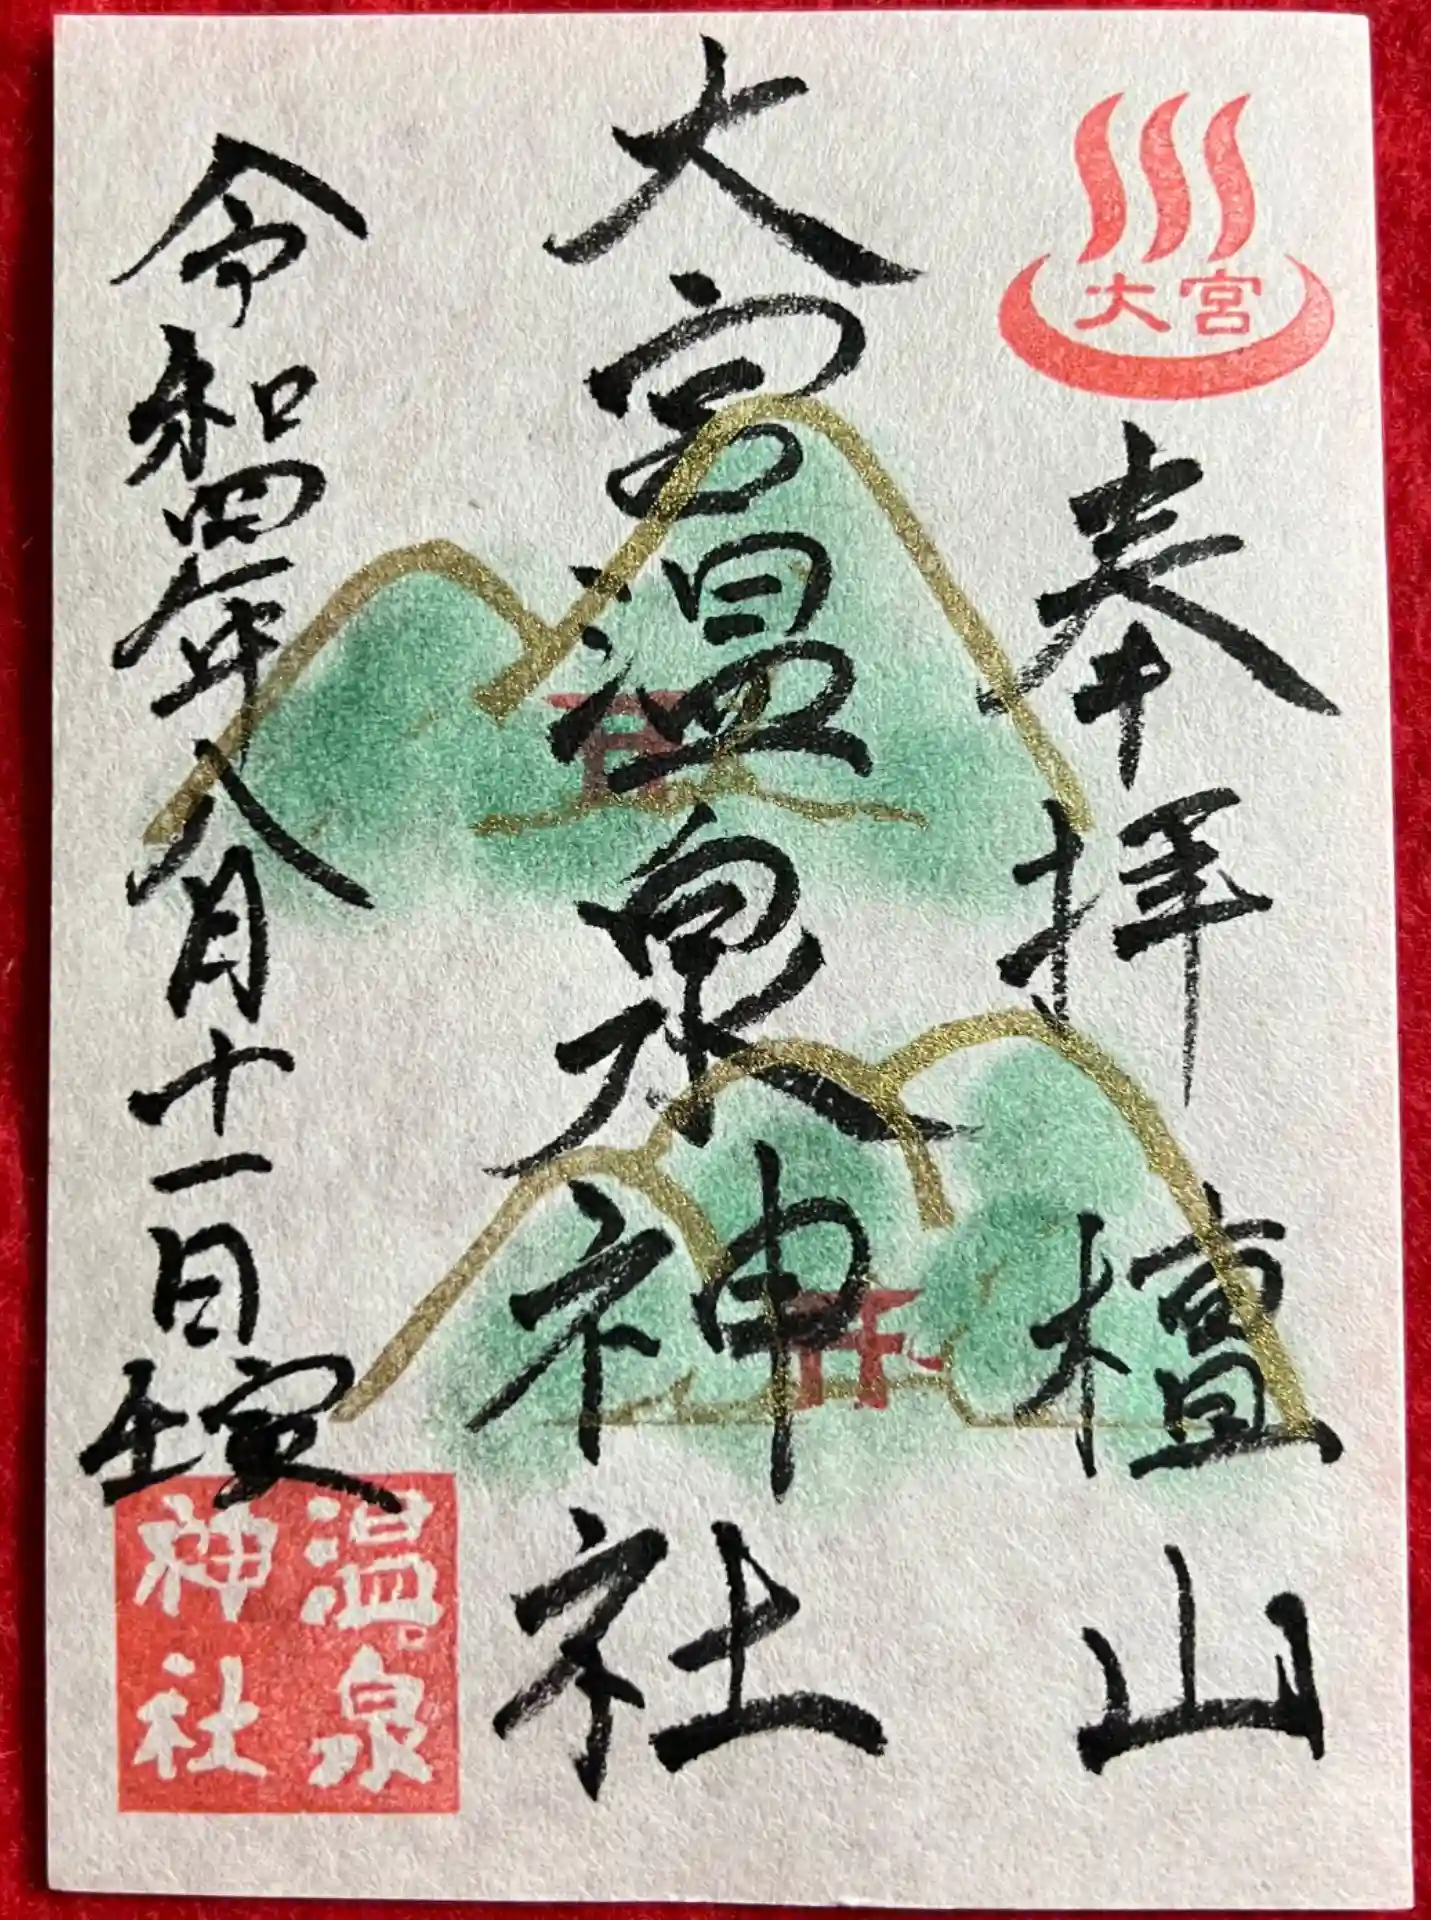 大宮
奉拝
檀山
大宮温泉神社
令和四年八月十一日
温泉
神社